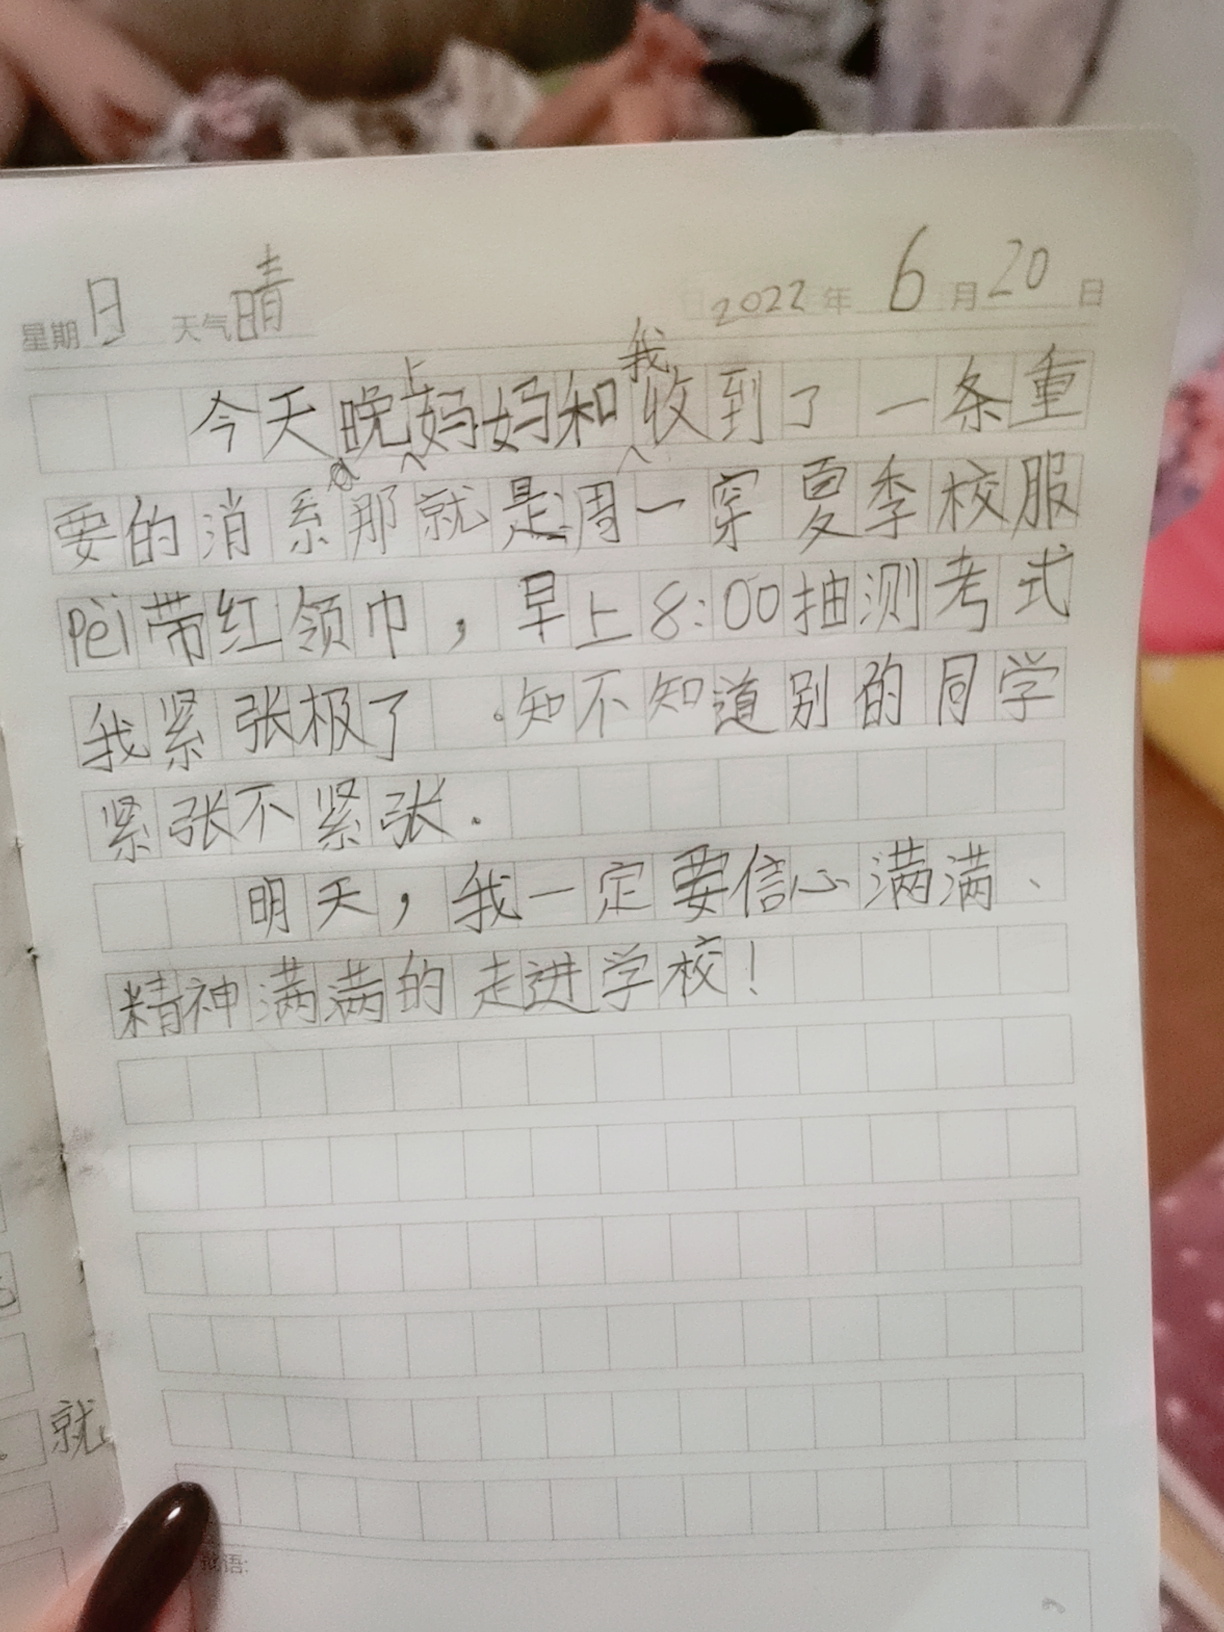 星期日 天气晴 2022年6月20日
今天晚上妈妈和我收到了一条重
要的消系那就是:周一穿夏季校服
pèi带红领巾，早上8:00抽测考式
我紧张极了。知不知道别的同学
紧张不紧张.
明天，我一定要信心满满、
精神满满的走进学校!
就